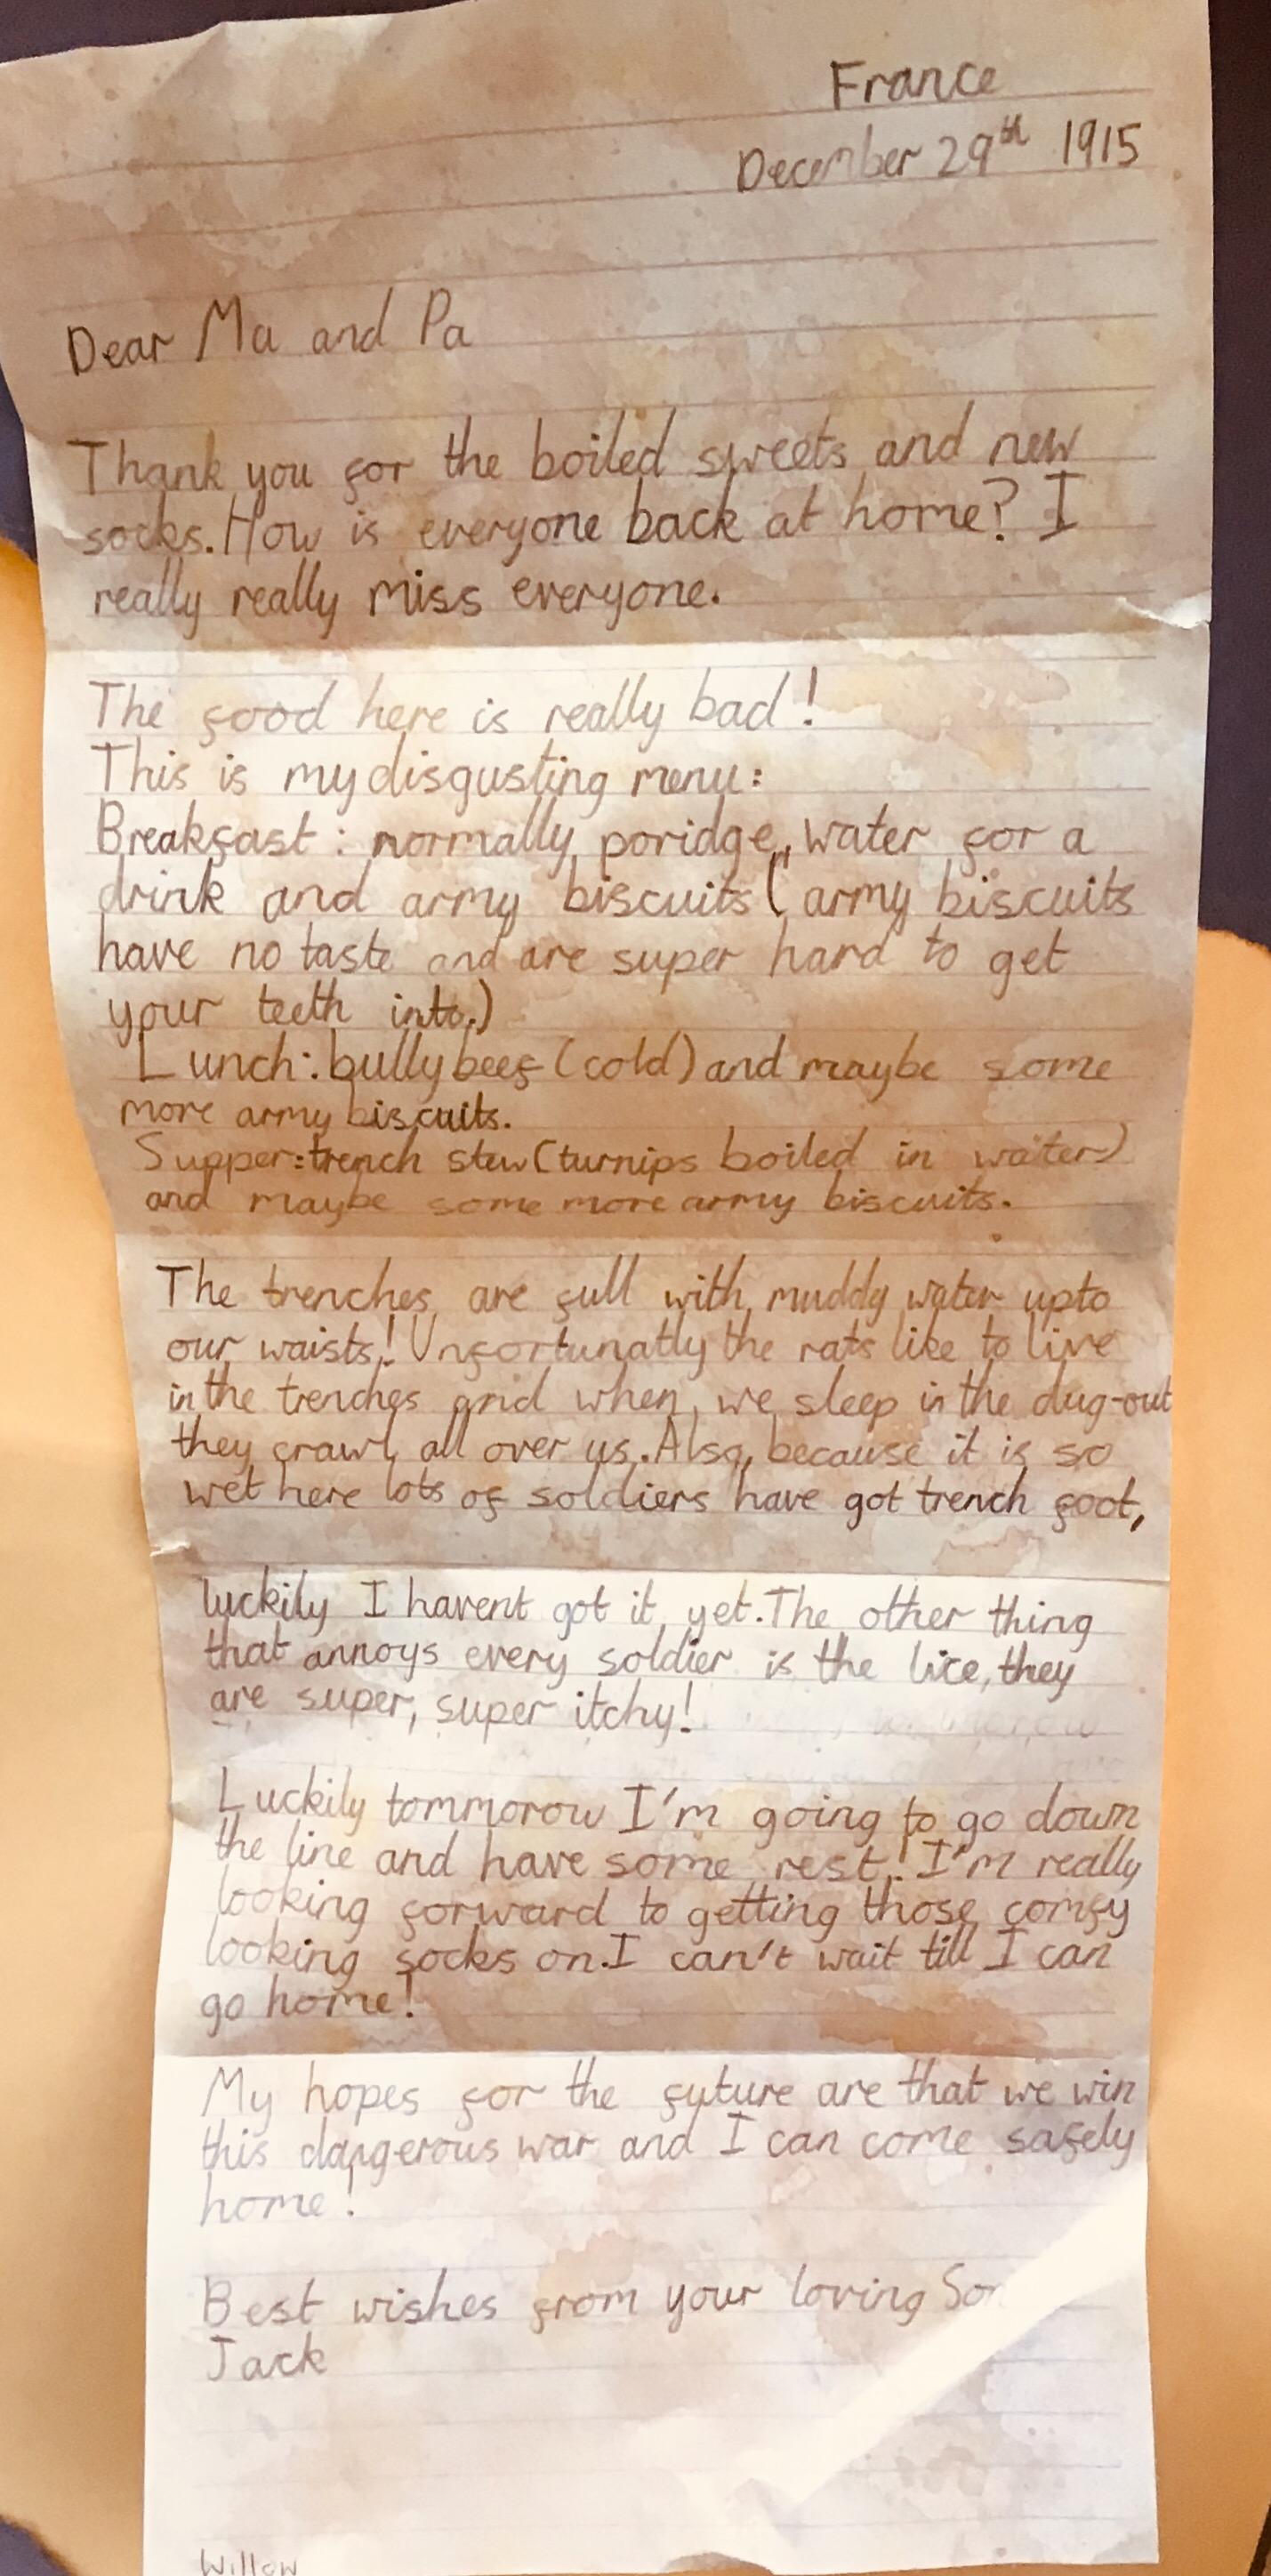 France
December 29th 1915
Dear Ma and Pa
Thank you for the boiled sweets and new
socks. How is everyone back at home? I
really really miss everyone.
The food here is really bad!
This is my disgusting menu:
Breakfast: normally poridge, water for a
drink and army biscuits (army biscuits
have no taste and are super hard to get
your teeth into.)
Lunch: bully beef (cold) and maybe some
more army biscuits.
Supper: trench stew (turnips boiled in water)
and maybe some more army biscuits.
The trenches are full with muddy water upto
our waists! Unfortunatly the rats like to live
in the trenches and when we sleep in the dug-out
they crawl all over us. Also, because it is so
wet here lots of soldiers have got trench foot,
luckily I havent got it yet. The other thing
that annoys every soldier is the lice, they
are super, super itchy!
Luckily tommorow I'm going to go down
the line and have some rest! I'm really
looking forward to getting those comfy
looking socks on. I can't wait till I can
go home!
My hopes for the future are that we win
this dangerous war and I can come safely
home!
Best wishes from your loving Son
Jack
Willow